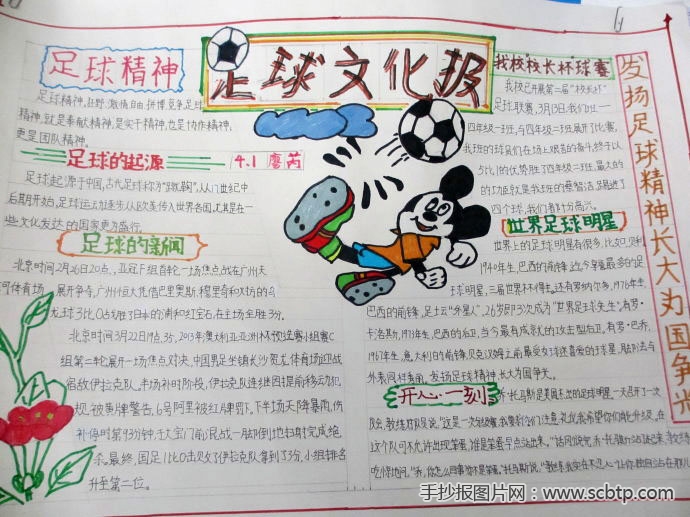 足球精神
足球文化报
足球精神,狂野、激情、自由、拼搏、竞争,足球
精神,就是奉献精神,是实干精神,也是协作精神,
更是团队精神。
足球的起源
4.1 廖芮
足球起源于中国,古代足球称为"蹴鞠",从17世纪中
后期开始,足球运动逐步从欧美传入世界各国,尤其是在一
些文化发达的国家更为盛行。
足球的新闻
北京时间2月26日20点,亚冠F组首轮一场焦点战在广州天
河体育场展开争夺,广州恒大凭借巴里奥斯、穆里奇和对方的乌
龙球3比0战胜了日本的浦和红宝石,在主场全胜3分。
北京时间3月22日19点35,2013年澳利亚亚洲杯预选赛小组赛C
组第二轮展开一场焦点对决,中国男足坐镇长沙贺龙体育场迎战
宿敌伊拉克队,半场补时阶段,伊拉克连续因提前移动犯
规被黄牌警告,6号阿里被红牌罚下,下半场天降暴雨,伤
补停时第93分钟,王大宝门前混战一脚倒地扫射完成绝
杀。最终,国足1比0击败了伊拉克队拿到了3分,小组排名
升至第二位。
我校校长杯球赛
我校已开展第二届"校长杯"
足球联赛,3月13日,我们四一
四年级一班,与四年级二班展开了比赛,
我班的球员们在场上艰苦的奋斗,终于以
5比1的优势胜了四年级二班,最大的
的功臣就是我班的蔡智洁,足踢进了
四个球,我们要为她高兴。
世界足球明星
世界上的足球明星有很多,比如:贝利
1940年生,巴西的前锋,迄今拿
球明星,三届世界杯得主。还有罗纳尔多,1976年生,
巴西的前锋,足坛云"外星人",26岁即3次成为"世界足球先生",有罗·
卡洛斯,1973年生,巴西的后卫,当今最有成就的攻击型后卫,有罗·巴乔,
1967年生,意大利的前锋,贝克汉姆,前最受女球迷喜爱的球星,脚法与
外表同样秀丽。发扬足球精神长大为国争光。
开心一刻
乔·托马斯是美国杰出的足球明星,一天召开了一次
队会,教练对队员说:"这是一次
这个队可不允许出现笨蛋,谁是笨蛋早点站出来。"
吃惊地问,"乔,你怎么
发扬足球精神长大为国争光
手抄报图片网：www.scbtp.com